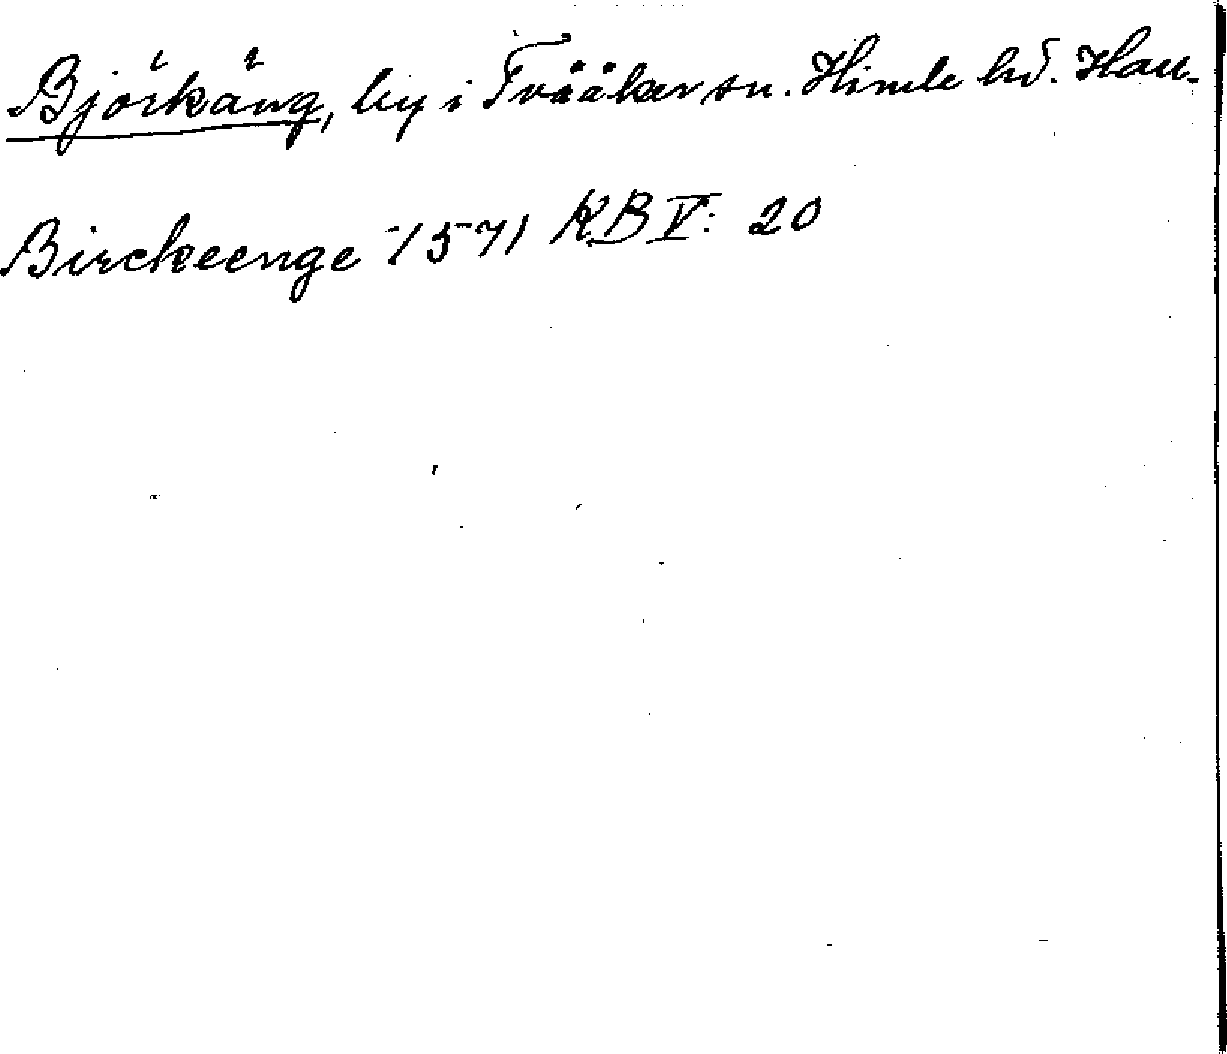 Björkäng, by i Tvååker sn. Himle hd. Hall.
Birckeenge 1571 KB V: 20